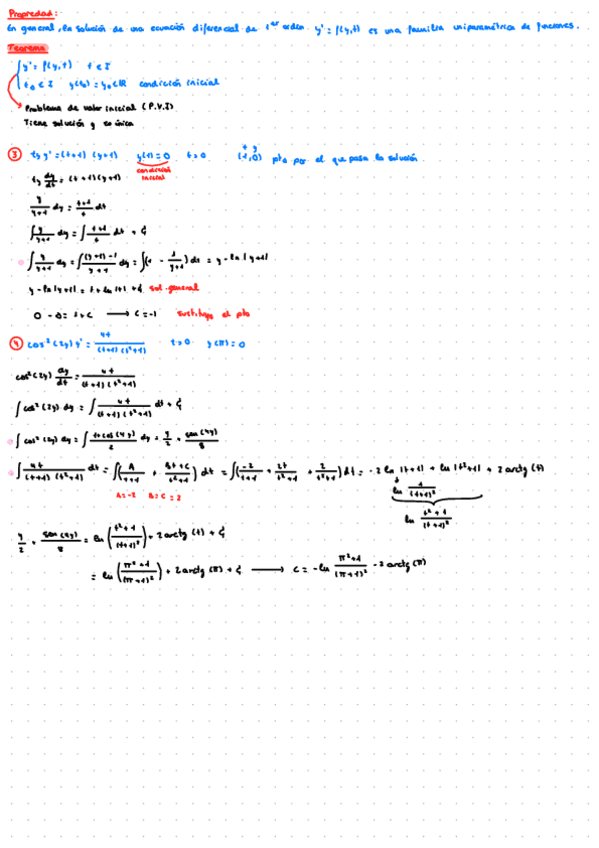 Propiedad:
En general, la solución de una ecuación diferencial de 1er orden y' = f(y,t) es una familia uniparamétrica de funciones.
Teorema
y' = f(y,t) t ∈ I
t₀ ∈ I y(t₀) = y₀ ∈ ℝ condición inicial
Problema de valor inicial (P.V.I)
Tiene solución y es única
③ ty y' = (t+1) (y+1) y(1) = 0 t>0 (1,0) pto por el que pasa la solución
t y
condición inicial
ty dy/dt = (t+1)(y+1)
y/(y+1) dy = (t+1)/t dt
∫ y/(y+1) dy = ∫ (t+1)/t dt + C
∫ y/(y+1) dy = ∫ ((y+1)-1)/(y+1) dy = ∫(1 - 1/(y+1)) dt = y - ln|y+1|
y - ln|y+1| = t + ln|t| + C sol. general
0 - 0 = 1 + C → C = -1 sustituyo el pto
④ cos²(2y) y' = 4t/((t+1)(t²+1)) t>0 y(π) = 0
cos²(2y) dy/dt = 4t/((t+1)(t²+1))
∫ cos²(2y) dy = ∫ 4t/((t+1)(t²+1)) dt + C
∫ cos²(2y) dy = ∫ (1+cos(4y))/2 dy = y/2 + sen(4y)/8
∫ 4t/((t+1)(t²+1)) dt = ∫(A/(t+1) + (Bt+C)/(t²+1)) dt = ∫(-2/(t+1) + 2t/(t²+1) + 2/(t²+1)) dt = -2 ln|t+1| + ln|t²+1| + 2 arctg(t)
A = -2 B = C = 2
ln 1/(t+1)²
ln (t²+1)/(t+1)²
y/2 + sen(4y)/8 = ln((t²+1)/(t+1)²) + 2 arctg(t) + C
= ln((π²+1)/(π+1)²) + 2 arctg(π) + C → C = -ln (π²+1)/(π+1)² - 2 arctg(π)